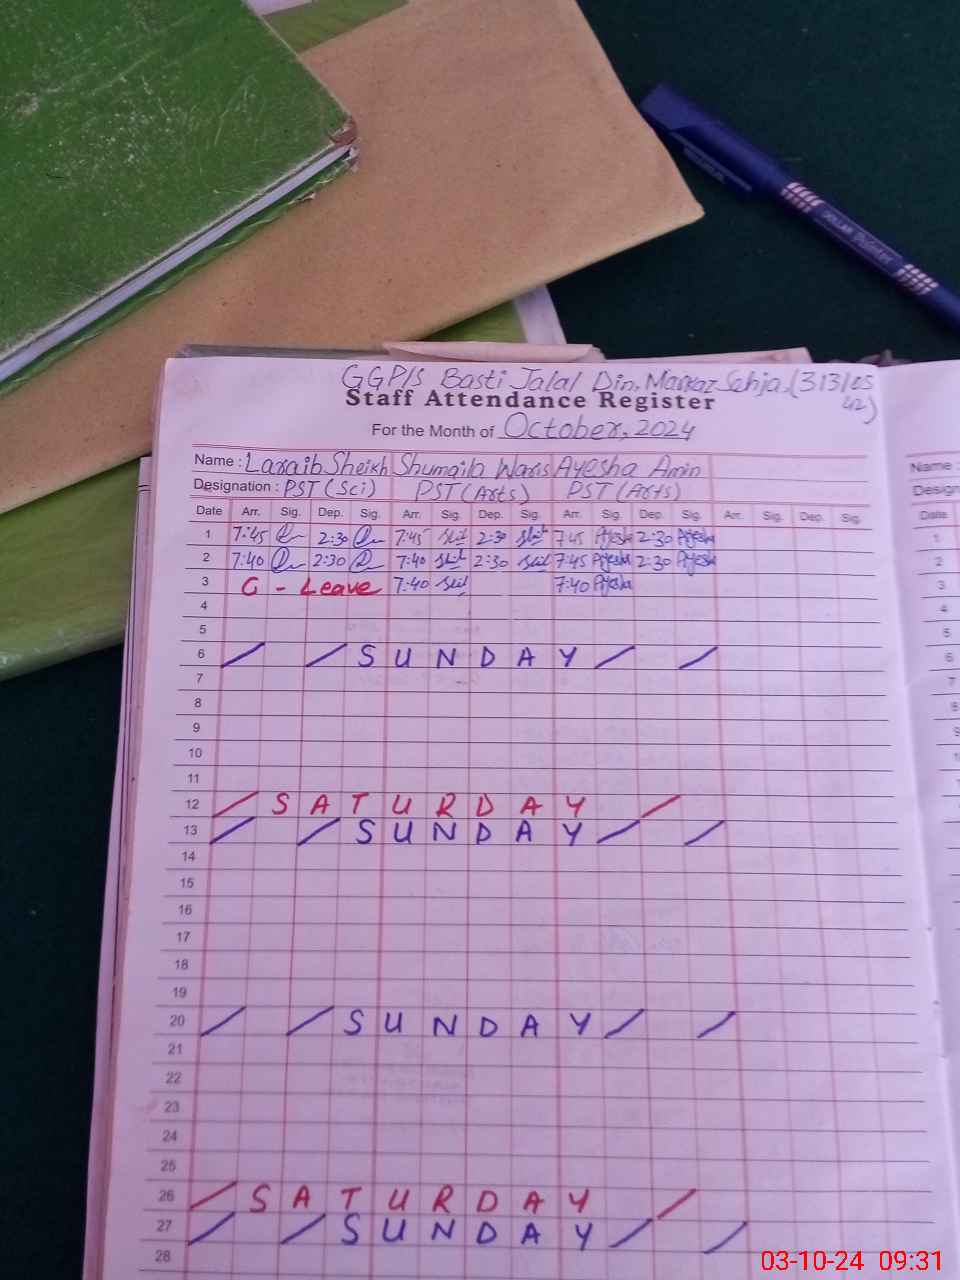 DOLLAR
GGP/S Basti Jalal Din, Markaz Sehja (313105
42)
Staff Attendance Register
For the Month of October, 2024
Name : Laraib Sheikh Shumaila Waris Ayesha Amin
Designation : PST (Sci) PST (Arts) PST (Arts)
Date Arr. Sig. Dep. Sig. Arr. Sig. Dep. Sig. Arr. Sig. Dep. Sig. Arr. Sig. Dep. Sig.
1 7:45 2:30 7:45 2:30 7:45 Ayesha 2:30 Ayesha
2 7:40 2:30 7:40 2:30 7:45 Ayesha 2:30 Ayesha
3 C - Leave 7:40 7:40 Ayesha
4
5
6 SUNDAY
7
8
9
10
11
12 SATURDAY
13 SUNDAY
14
15
16
17
18
19
20 SUNDAY
21
22
23
24
25
26 SATURDAY
27 SUNDAY
28
Name :
Design
Date
1
2
3
4
5
6
7
8
9
03-10-24 09:31